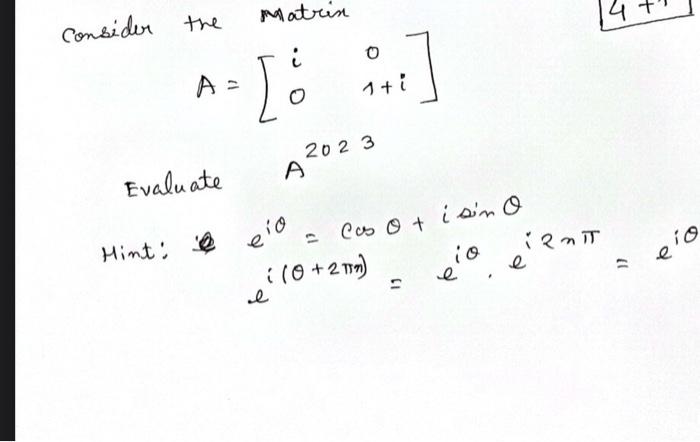 Consider the Matrix
4 +
A = [ i 0
0 1+i ]
Evaluate A^2023
Hint: e^iθ = Cos θ + i sin θ
e^i(θ+2πn) = e^iθ . e^i2nπ = e^iθ